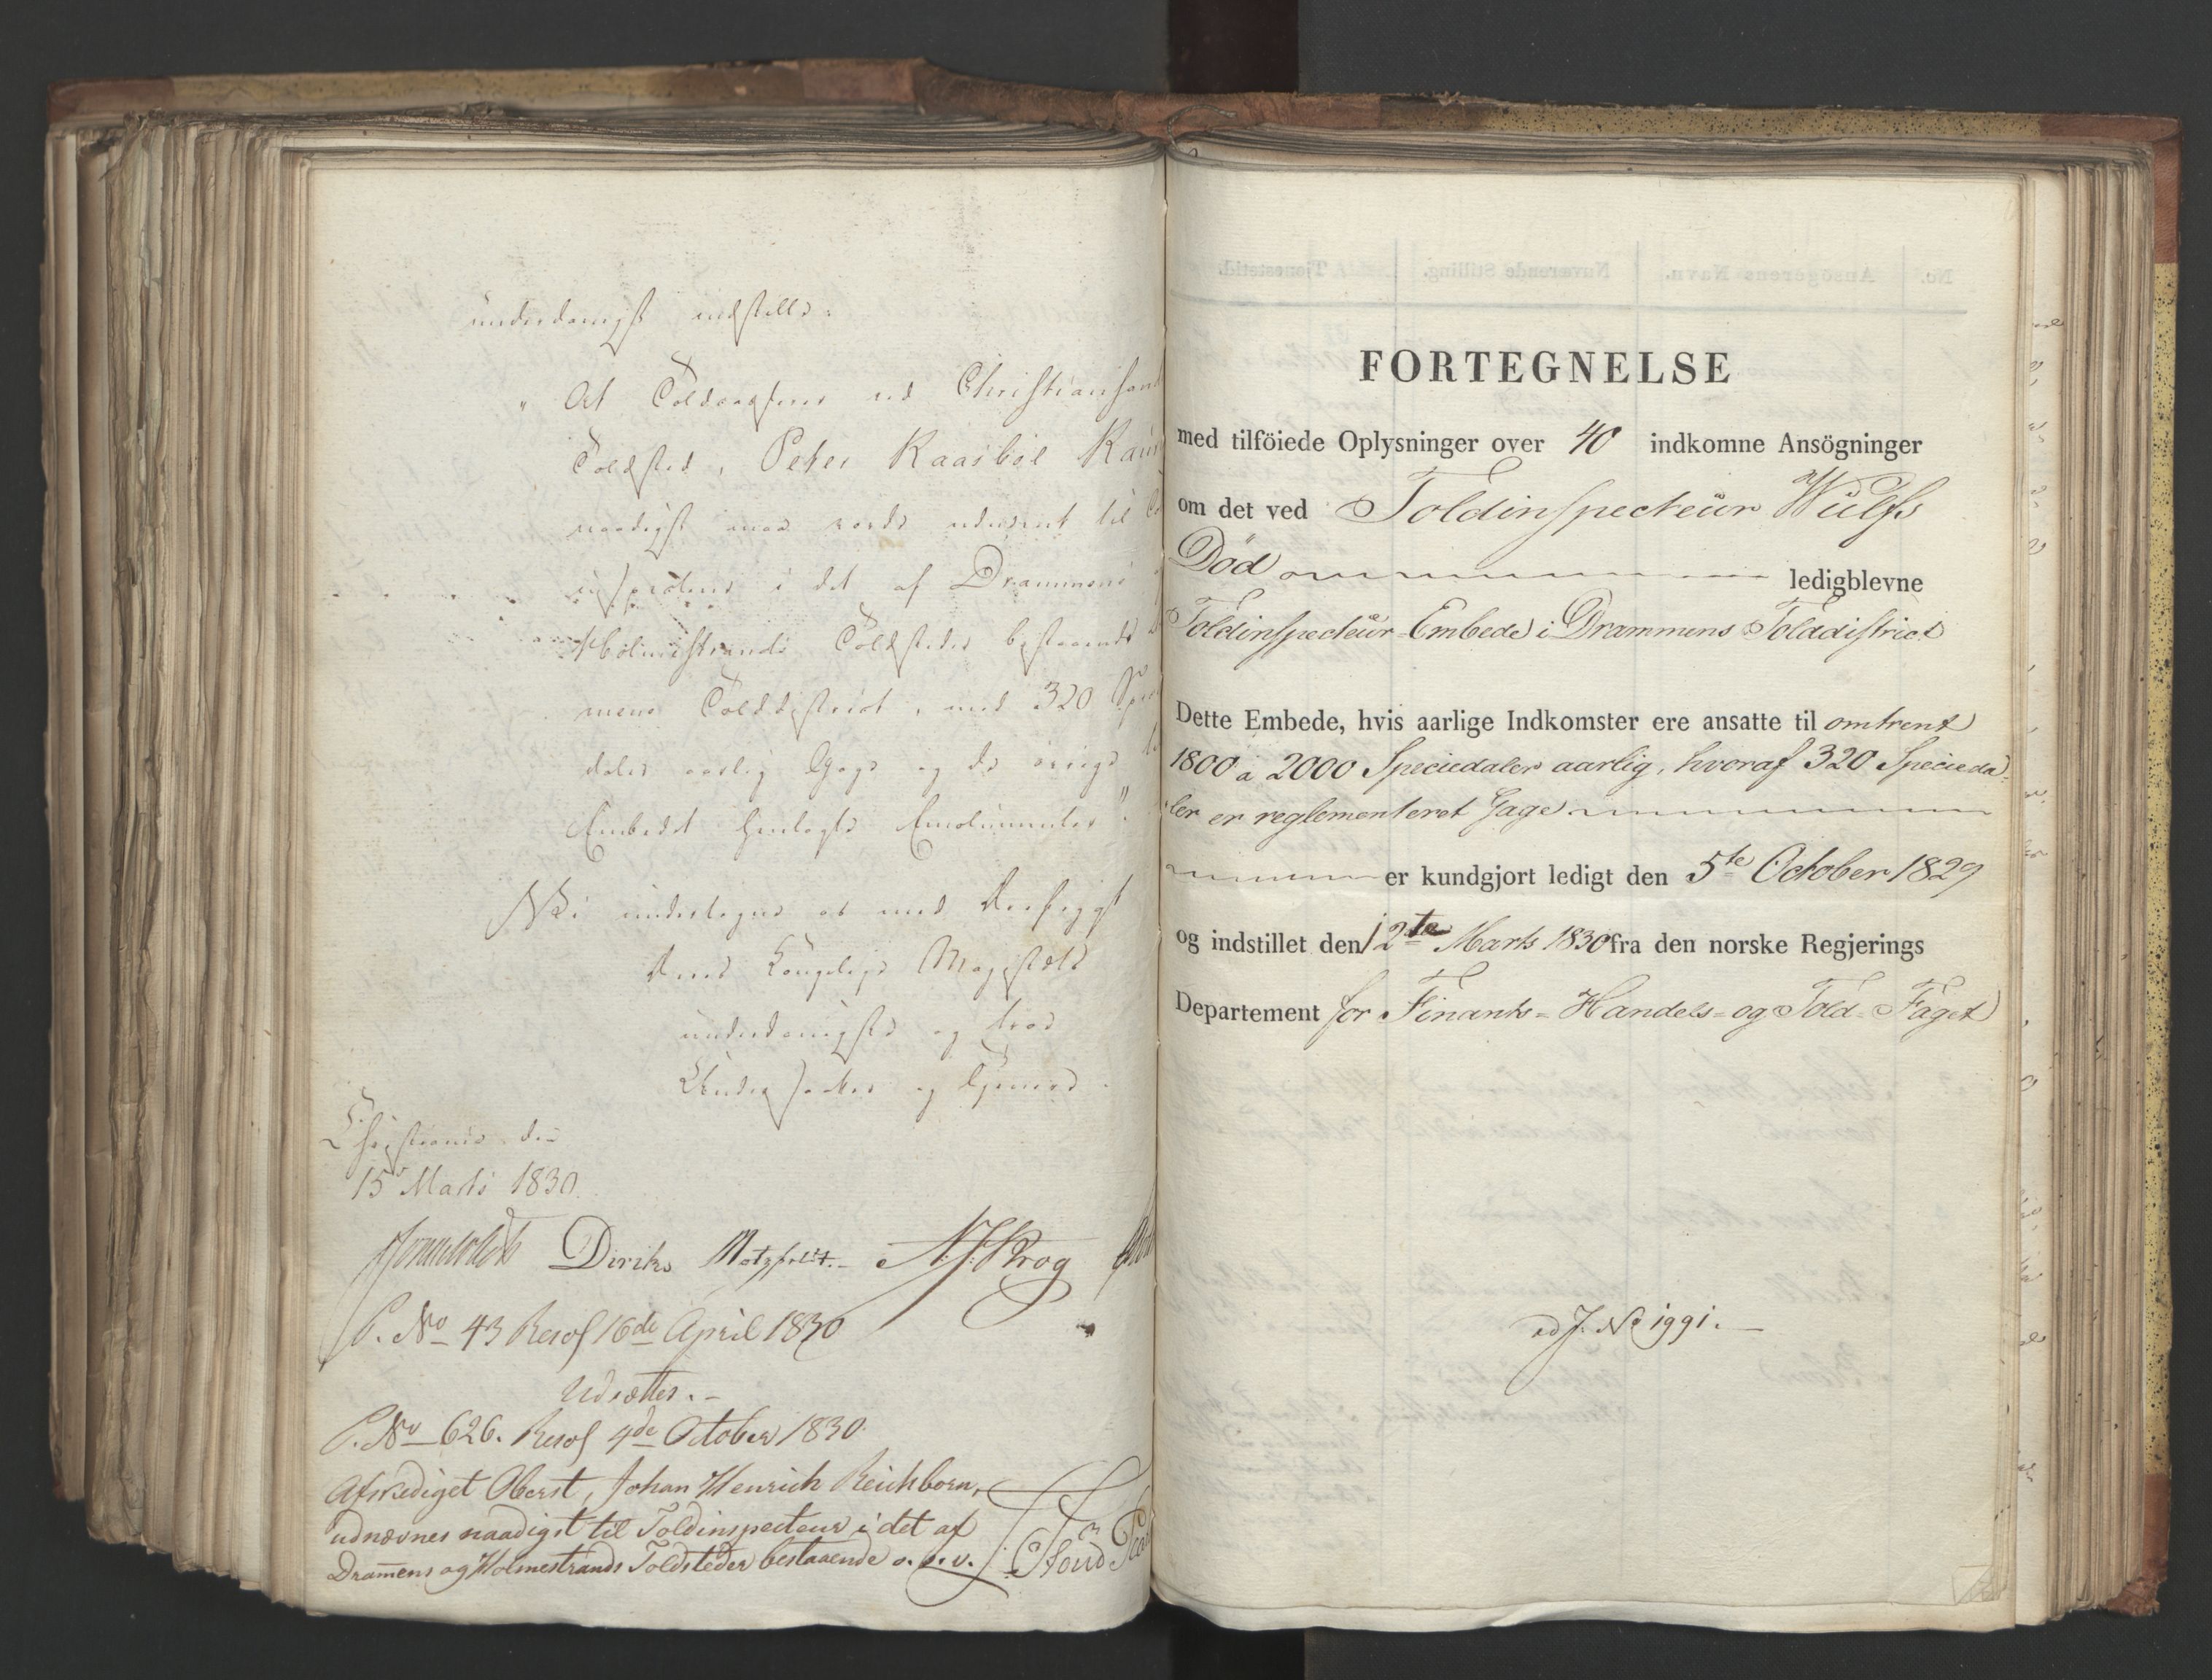 underdanigst indstille:
"At Toldcasserer ved Christiansand
Toldsted, Peter Raasböl
naadigst maa vorde udnævnt til
inspecteur i det af Drammens
Holmestrands Toldsteder bestaaende
mens Tolddistrict, med 320
daler aarlig Gage og de øvrige
Embedet henlagte Emolumenter".
Vi undertegne os med dybeste
Deres Kongelige Majestæts
underdanigste og troe
Undersaatter og Tjenere.
Christiania den
15 Marts 1830.
Diriks Motzfeldt. Krog
P. No 43 Resol 16de April 1830
Udsættes.-
P. No 626. Resol 4de October 1830.
Afskediget Oberst, Johan Henrich Reichborn,
udnævnes naadigst til Toldinspecteur i det af
Dramens og Holmestrands Toldsteder bestaaende o. s. v.
FORTEGNELSE
med tilföiede Oplysninger over 40 indkomne Ansögninger
om det ved Toldinspecteür Wülfs
Död ledigblevne
Toldinspecteür-Embede i Drammens Tolddistrict
Dette Embede, hvis aarlige Indkomster ere ansatte til omtrent
1800 a 2000 Speciedaler aarlig, hvoraf 320 Specieda-
ler er reglementeret Gage
er kundgjort ledigt den 5te October 1829
og indstillet den 12te Marts 1830 fra den norske Regjerings
Departement for Finants- Handels- og Told-Faget
ad J. No 1991.